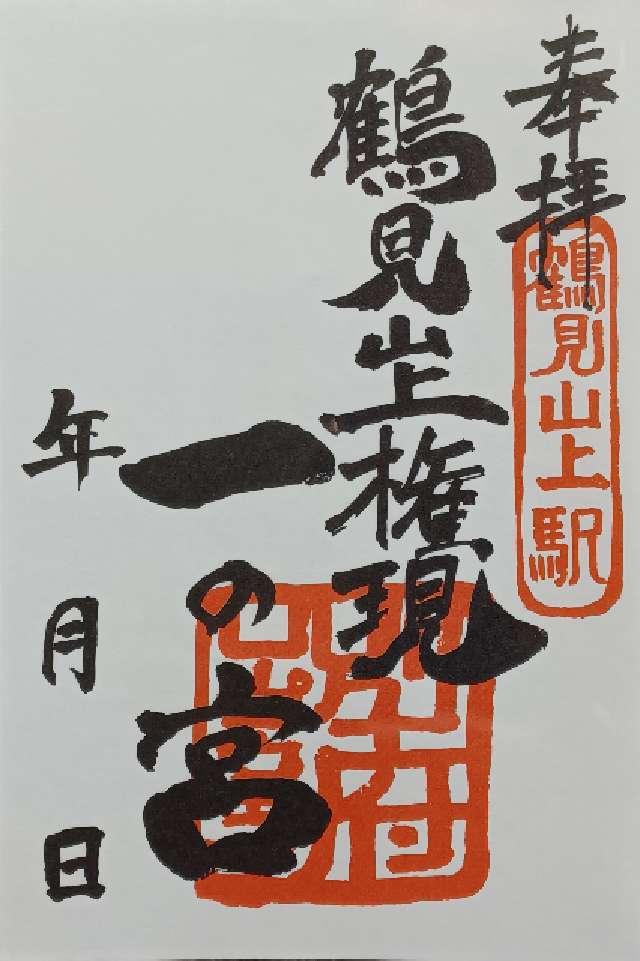 奉拝
鶴見山上駅
鶴見山上権現
一の宮
年 月 日